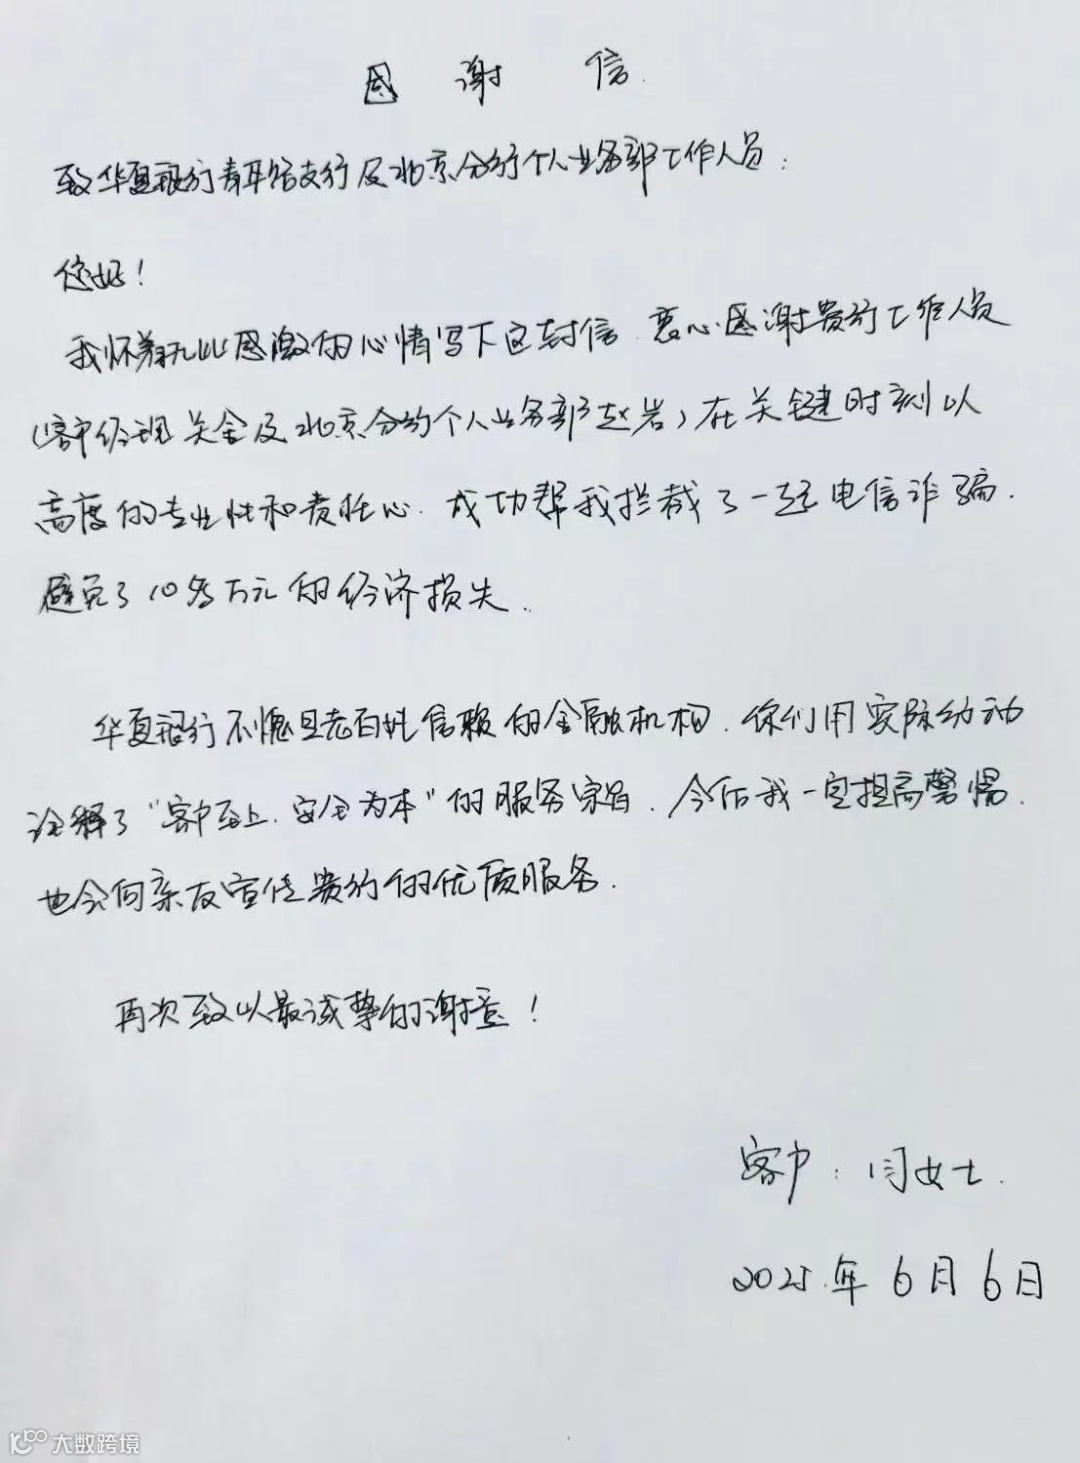 感 谢 信.
致华夏银行青年路支行及北京分行个人业务部工作人员:
您好!
我怀着无比感激的心情写下这封信.衷心感谢贵行工作人员
(客户经理关金及北京分行个人业务部赵岩)在关键时刻以
高度的专业性和责任心.成功帮我拦截了一起电信诈骗.
避免了10多万元的经济损失.
华夏银行不愧是老百姓信赖的金融机构.你们用实际行动
诠释了"客户至上.安全为本"的服务宗旨.今后我一定提高警惕.
也会向亲友宣传贵行的优质服务.
再次致以最诚挚的谢意!
客户:闫女士.
2025.年6月6日
大数跨境